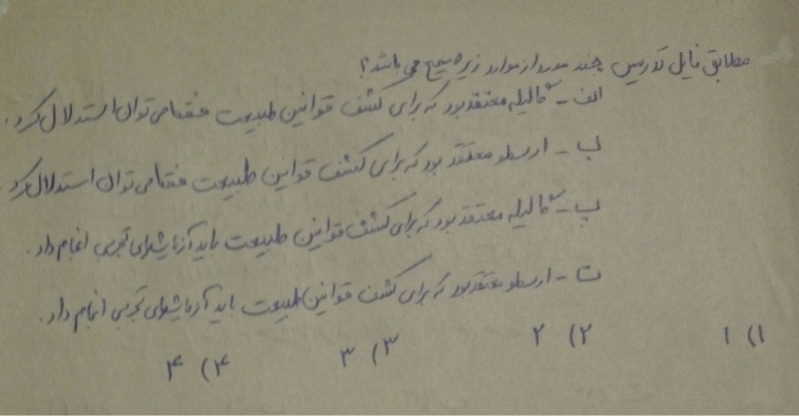 مطابق فایل تدریس چند مورد از موارد زیر صحیح می باشد؟
الف - گالیله معتقد بود که برای کشف قوانین طبیعت فقط می توان استدلال کرد.
ب - ارسطو معتقد بود که برای کشف قوانین طبیعت فقط می توان استدلال کرد
پ - گالیله معتقد بود که برای کشف قوانین طبیعت باید آزمایشهای تجربی انجام داد.
ت - ارسطو معتقد بود که برای کشف قوانین طبیعت باید آزمایشهای تجربی انجام داد.
۱) ۱ ۲) ۲ ۳) ۳ ۴) ۴